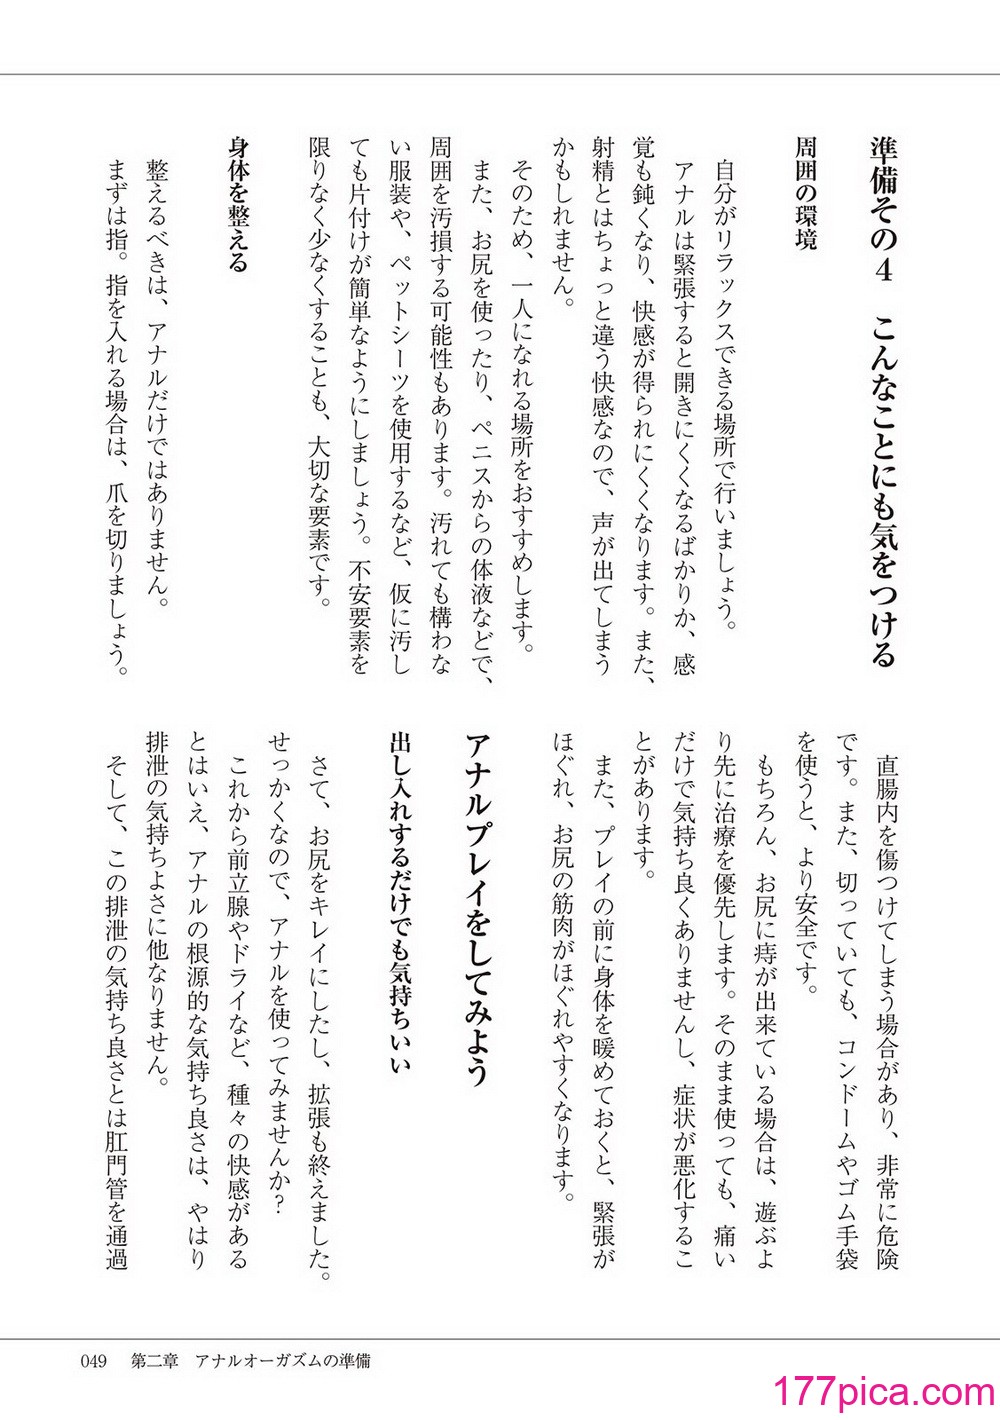 準備その4　こんなことにも気をつける
周囲の環境
自分がリラックスできる場所で行いましょう。
アナルは緊張すると開きにくくなるばかりか、感
覚も鈍くなり、快感が得られにくくなります。また、
射精とはちょっと違う快感なので、声が出てしまう
かもしれません。
そのため、一人になれる場所をおすすめします。
また、お尻を使ったり、ペニスからの体液などで、
周囲を汚損する可能性もあります。汚れても構わな
い服装や、ペットシーツを使用するなど、仮に汚し
ても片付けが簡単なようにしましょう。不安要素を
限りなく少なくすることも、大切な要素です。
身体を整える
整えるべきは、アナルだけではありません。
まずは指。指を入れる場合は、爪を切りましょう。
直腸内を傷つけてしまう場合があり、非常に危険
です。また、切っていても、コンドームやゴム手袋
を使うと、より安全です。
もちろん、お尻に痔が出来ている場合は、遊ぶよ
り先に治療を優先します。そのまま使っても、痛い
だけで気持ち良くありませんし、症状が悪化するこ
とがあります。
また、プレイの前に身体を暖めておくと、緊張が
ほぐれ、お尻の筋肉がほぐれやすくなります。
アナルプレイをしてみよう
出し入れするだけでも気持ちいい
さて、お尻をキレイにしたし、拡張も終えました。
せっかくなので、アナルを使ってみませんか?
これから前立腺やドライなど、種々の快感がある
とはいえ、アナルの根源的な気持ち良さは、やはり
排泄の気持ちよさに他なりません。
そして、この排泄の気持ち良さとは肛門管を通過
049　第二章　アナルオーガズムの準備
177pica.com